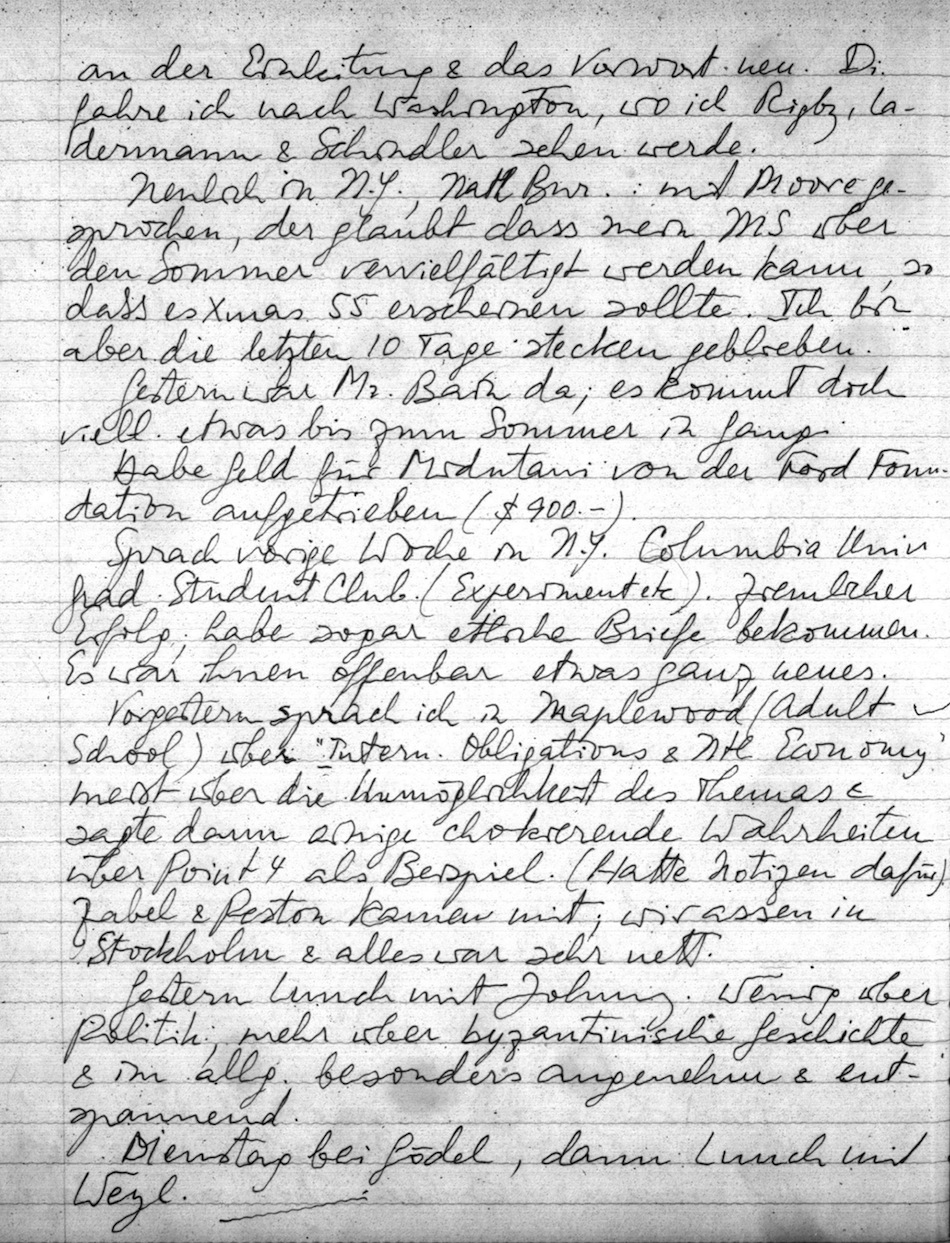 an der Einleitung & das Vorwort neu. Di.
fahre ich nach Washington, wo ich Rigby, La-
dermann & Schindler sehen werde.
Neulich in N.Y., Natl Bur.: mit Moore ge-
sprochen, der glaubt dass mein MS über
den Sommer vervielfältigt werden kann, so
dass es Xmas 55 erscheinen sollte. Ich bin
aber die letzten 10 Tage stecken geblieben.
Gestern war Mr. da; es kommt doch
viell. etwas bis zum Sommer in Gang.
Habe Geld für Midutani von der Ford Foun-
dation aufgetrieben ($ 900.-).
Sprach vorige Woche in N.Y. Columbia Univ
Grad. Student Club. (Experiment etc). Ziemlicher
Erfolg; habe sogar etliche Briefe bekommen.
Es war ihnen offenbar etwas ganz neues.
Vorgestern sprach ich in Maplewood (Adult
School) über "Intern. Obligations & Ntl Economy"
meist über die Unmöglichkeit des Themas &
sagte dann einige chokierende Wahrheiten
über Point 4 als Beispiel. (Hatte Notizen dafür)
Zabel & Peston kamen mit; wir assen in
Stockholm & alles war sehr nett.
Gestern Lunch mit Johnny. Wenig über
Politik, mehr über byzantinische Geschichte
& im allg. besonders angenehm & ent-
spannend.
Dienstag bei Gödel, dann Lunch mit
Weyl.